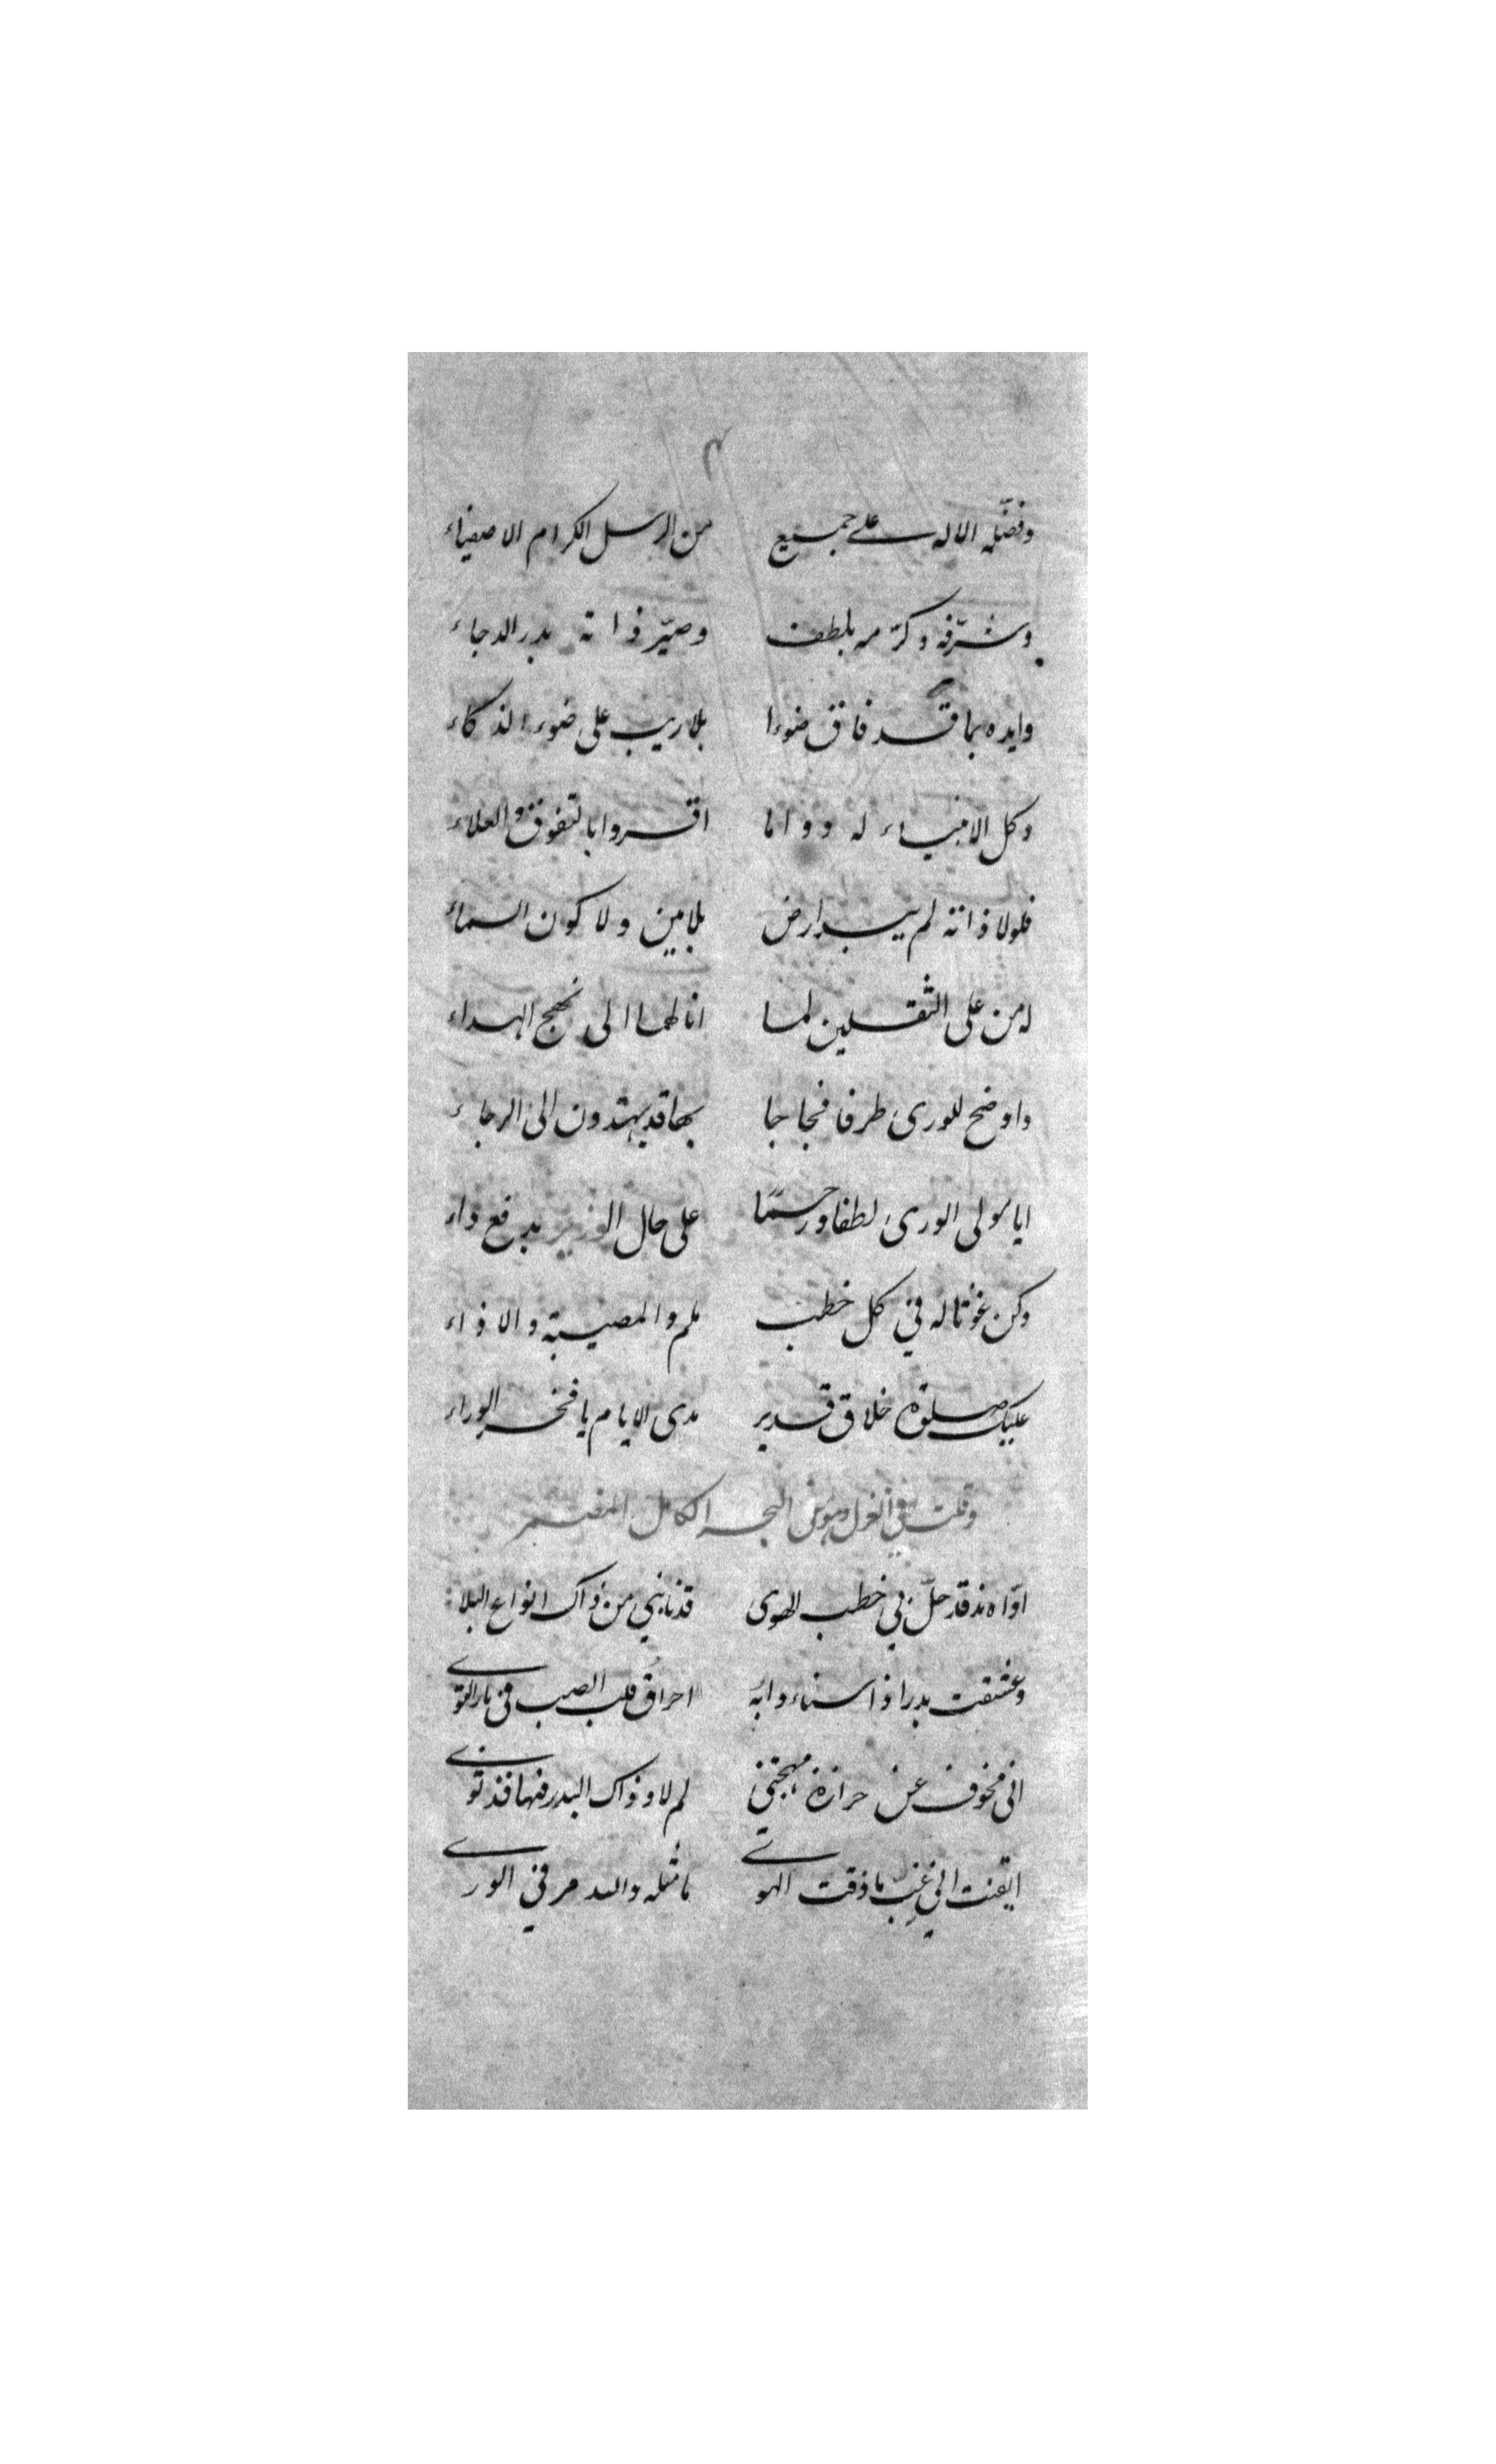 ٢
وفضّله الاله على جميع من الرسل الكرام الاصفياء
وشرّفه وكرّمه بلطف وصيّر ذاته بدر الدجاء
وايده بما قد فاق ضوءا بلاريب على ضوء الذكاء
وكل الانبياء له دواما اقروا بالتفوق والعلاء
فلولا ذاته لم يبد ارض بلامين ولا كون السماء
له من على الثقلين لما انالهما الى نهج الهداء
واوضح للورى طرفا فجاجا بها قد يهتدون الى الرجاء
ايا مولى الورى لطفا ورحما على حال الوزير بدفع داء
وكن غوثا له في كل خطب ملم والمصيبة والاذاء
عليك صلوة خلاق قدير مدى الايام يا فخر الوراء
وقلت في الغزل وهو من البحر الكامل
اوّاه مذ قد حلّ بي خطب الهوى قد نابني من ذاك انواع البلا
وعشقت بدرا ذا سناء دابه احراق قلب الصب في نار
اني مخوف عن حرازة مهجتي لم لا وذاك البدر فيها قد ثوى
ايقنت اني غب ما ذقت الهوى ما مثله والله مر في الورى